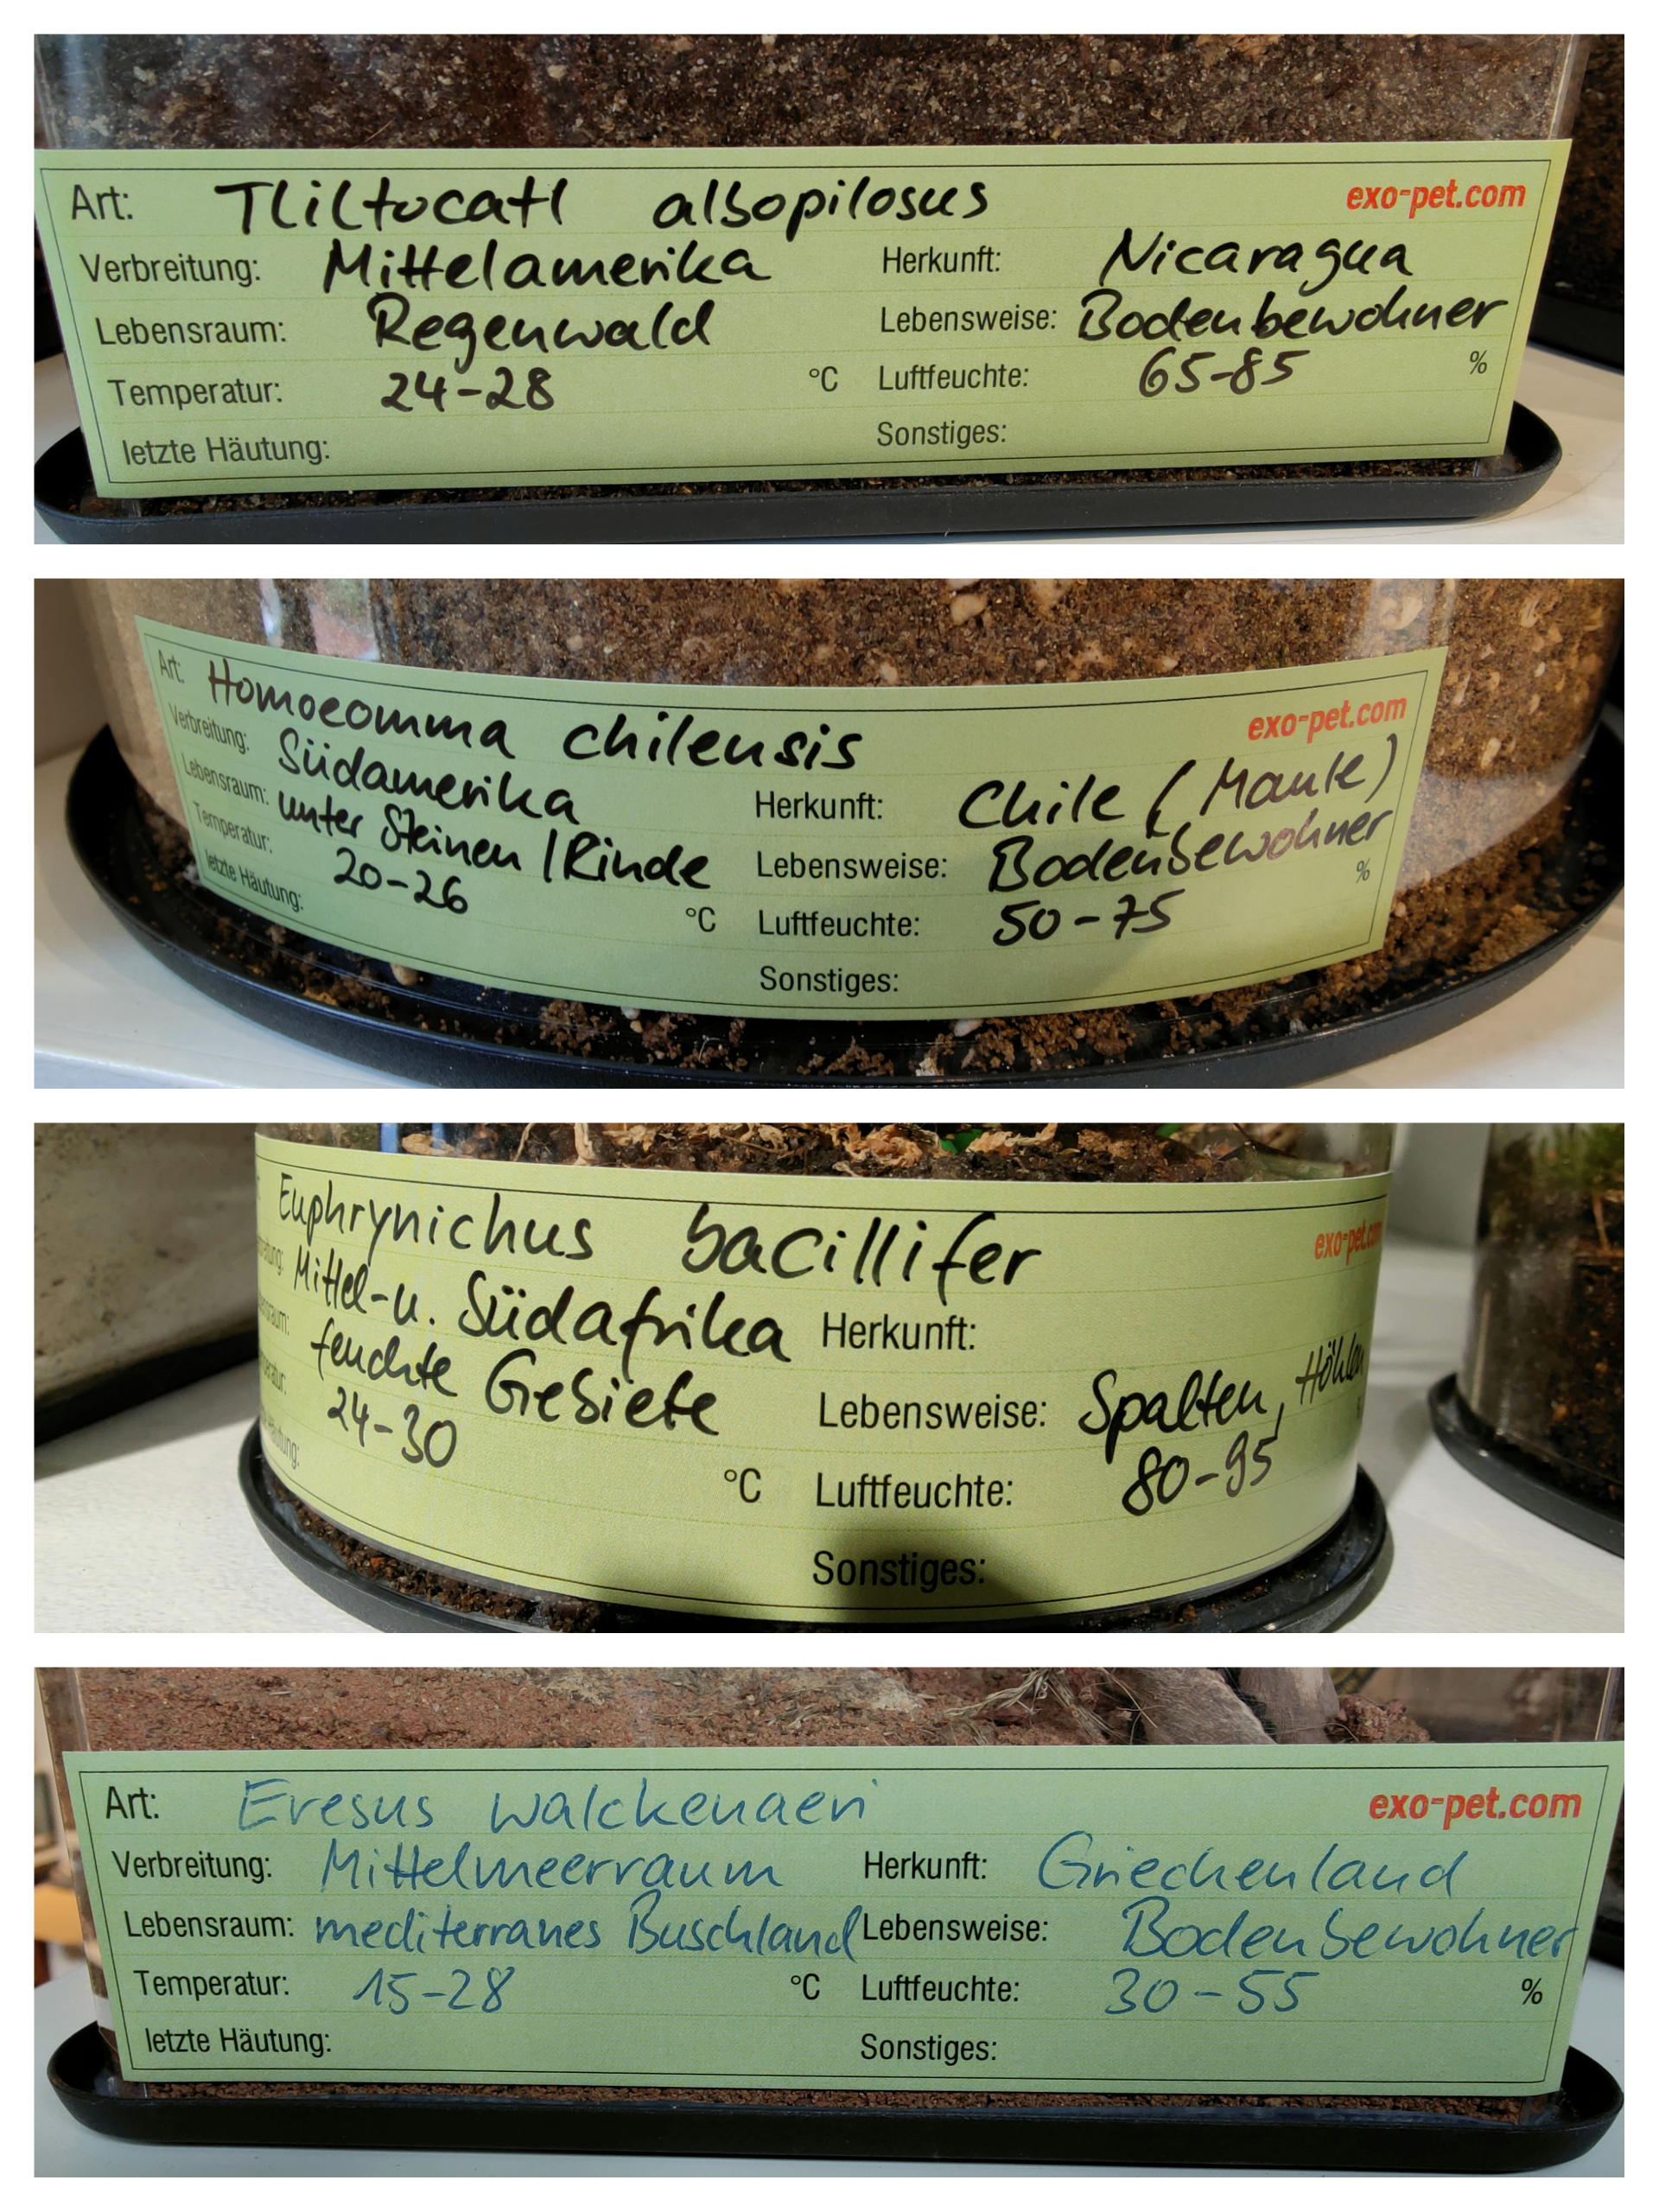 Art: Tliltocatl albopilosus exo-pet.com
Verbreitung: Mittelamerika Herkunft: Nicaragua
Lebensraum: Regenwald Lebensweise: Bodenbewohner
Temperatur: 24-28 °C Luftfeuchte: 65-85 %
letzte Häutung: Sonstiges:
Art: Homoeomma chilensis exo-pet.com
Verbreitung: Südamerika Herkunft: Chile (Maule)
Lebensraum: unter Steinen / Rinde Lebensweise: Bodenbewohner
Temperatur: 20-26 °C Luftfeuchte: 50-75 %
letzte Häutung: Sonstiges:
Euphrynichus bacillifer exo-pet.com
Mittel- u. Südafrika Herkunft:
feuchte Gebiete Lebensweise: Spalten, Höhlen
24-30 °C Luftfeuchte: 80-95
Sonstiges:
Art: Eresus walckenaeri exo-pet.com
Verbreitung: Mittelmeerraum Herkunft: Griechenland
Lebensraum: mediterranes Buschland Lebensweise: Bodenbewohner
Temperatur: 15-28 °C Luftfeuchte: 30-55 %
letzte Häutung: Sonstiges: